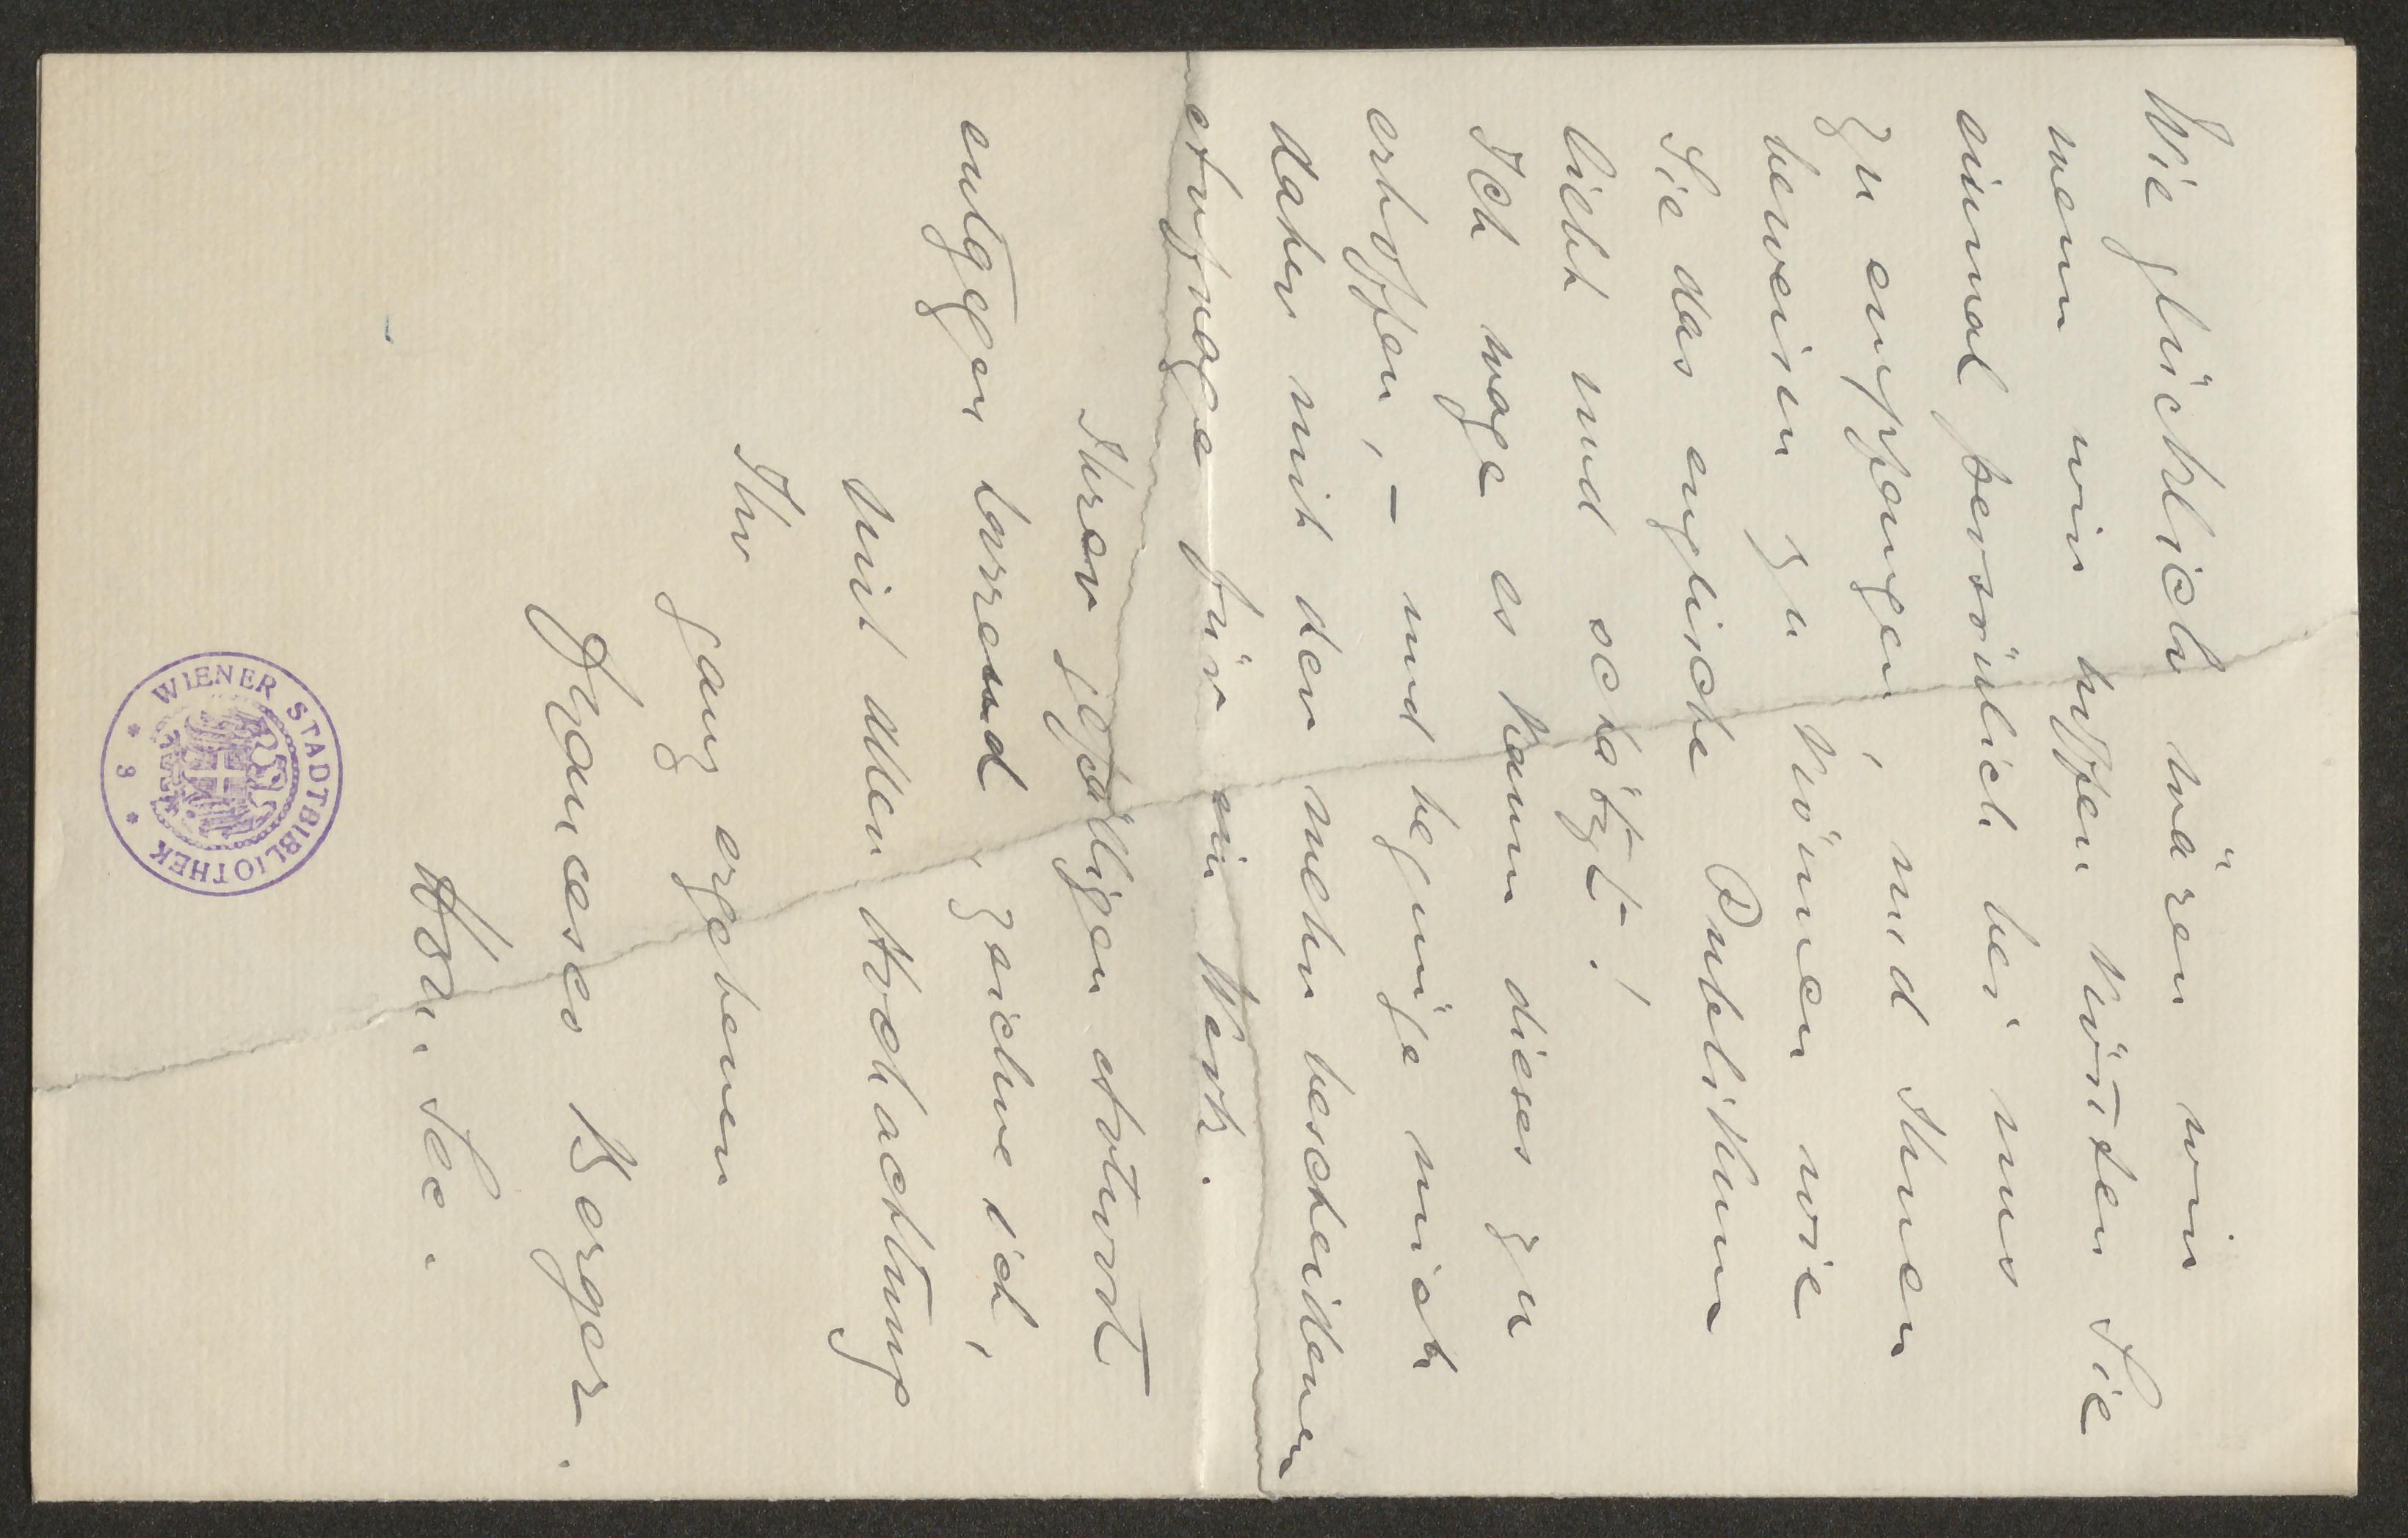 Wie glücklich wären wir
wenn wir hoffen könten Sie
einmal persönlich bei uns
zu empfangen, und Ihnen
beweisen zu können wie
Sie das englische Publikum
liebt und schätzt!
Ich wage es kaum dieses zu
erhoffen, – und begnüge mich
daher mit der mehr bescheidenen
Anfrage für ein Werk.
Ihrer gefälligen Antwort
entgegen harrend, zeichne ich,
mit aller Hochachtung
Ihr
ganz ergebener
Francesco Berger.
Hon. Sec.
WIENER STADTBIBLIOTHEK
* 8 *